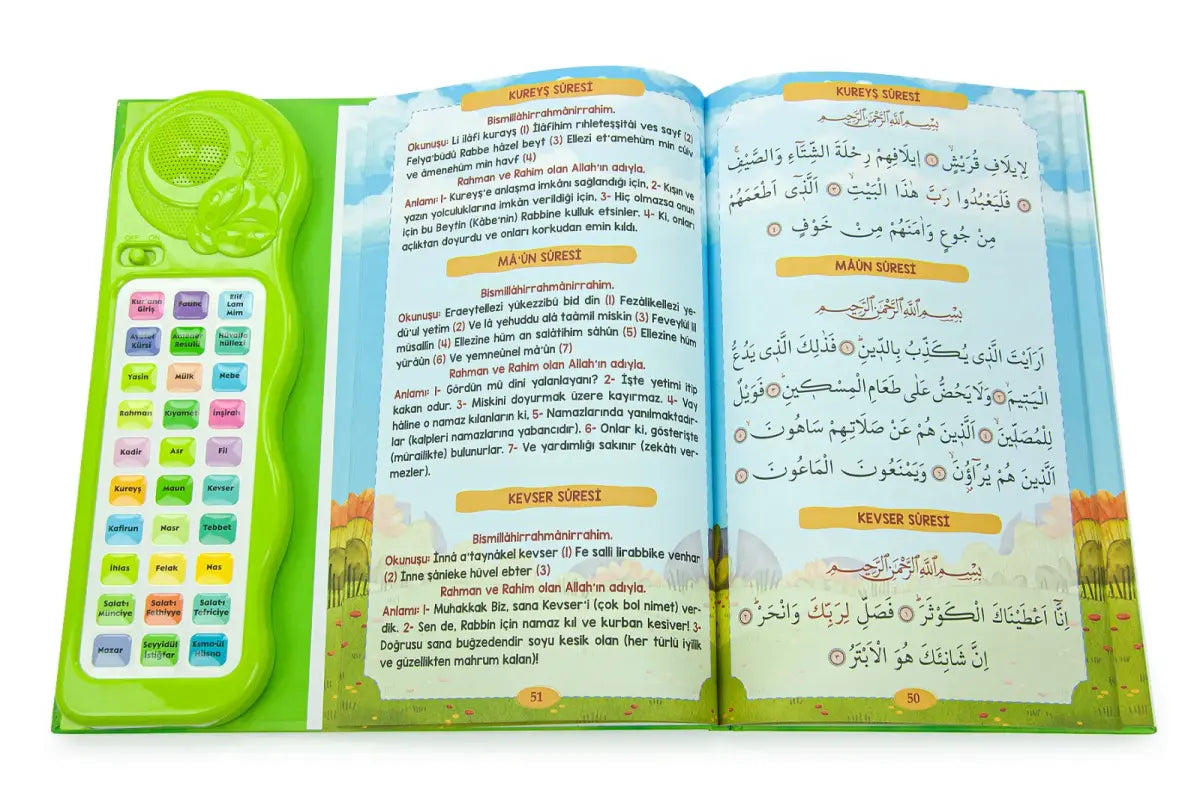 OFF ON
Kur'ana Giriş
Fatiha
Elif Lam Mim
Ayetel Kürsi
Amener Resulü
Hüvalla hüllezi
Yasin
Mülk
Nebe
Rahman
Kıyamet
İnşirah
Kadir
Asr
Fil
Kureyş
Maun
Kevser
Kafirun
Nasr
Tebbet
İhlas
Felak
Nas
Salat-ı Münciye
Salat-ı Fethiyye
Salat-ı Tefriciye
Nazar
Seyyidül İstiğfar
Esma-ül Hüsna
KUREYŞ SÛRESİ
Bismillâhirrahmânirrahim.
Okunuşu: Li ilâfi kurayş (1) İlâfihim rıhleteşşitâi ves sayf (2)
Felya'büdû Rabbe hâzel beyt (3) Ellezi et'amehüm min cûiv
ve âmenehüm min havf (4)
Rahman ve Rahim olan Allah'ın adıyla.
Anlamı: 1- Kureyş'e anlaşma imkânı sağlandığı için, 2- Kışın ve
yazın yolculuklarına imkân verildiği için, 3- Hiç olmazsa onun
için bu Beytin (Kâbe'nin) Rabbine kulluk etsinler. 4- Ki, onları
açlıktan doyurdu ve onları korkudan emin kıldı.
MÂ'ÛN SÛRESİ
Bismillâhirrahmânirrahim.
Okunuşu: Eraeytellezi yükezzibü bid din (1) Fezâlikellezi ye-
dü'ul yetim (2) Ve lâ yehuddu alâ taâmil miskin (3) Feveylül lil
müsallin (4) Ellezine hüm an salâtihim sâhûn (5) Ellezine hüm
yürâûn (6) Ve yemneûnel mâ'ûn (7)
Rahman ve Rahim olan Allah'ın adıyla.
Anlamı: 1- Gördün mü dini yalanlayanı? 2- İşte yetimi itip
kakan odur. 3- Miskini doyurmak üzere kayırmaz. 4- Vay
hâline o namaz kılanların ki, 5- Namazlarında yanılmaktadır-
lar (kalpleri namazlarına yabancıdır). 6- Onlar ki, gösterişte
(mürailikte) bulunurlar. 7- Ve yardımlığı sakınır (zekâtı ver-
mezler).
KEVSER SÛRESİ
Bismillâhirrahmânirrahim.
Okunuşu: İnnâ a'taynâkel kevser (1) Fe salli lirabbike venhar
(2) İnne şânieke hüvel ebter (3)
Rahman ve Rahim olan Allah'ın adıyla.
Anlamı: 1- Muhakkak Biz, sana Kevser'i (çok bol nimet) ver-
dik. 2- Sen de, Rabbin için namaz kıl ve kurban kesiver! 3-
Doğrusu sana buğzedendir soyu kesik olan (her türlü iyilik
ve güzellikten mahrum kalan)!
51
KUREYŞ SÛRESİ
بِسْمِ اللّٰهِ الرَّحْمٰنِ الرَّحِيمِ
لِاِيلَافِ قُرَيْشٍۙ ١ اِيلَافِهِمْ رِحْلَةَ الشِّتَٓاءِ وَالصَّيْفِۚ
٢ فَلْيَعْبُدُوا رَبَّ هٰذَا الْبَيْتِۙ ٣ اَلَّذٖٓى اَطْعَمَهُمْ
مِنْ جُوعٍ وَاٰمَنَهُمْ مِنْ خَوْفٍ ٤
MÂÛN SÛRESİ
بِسْمِ اللّٰهِ الرَّحْمٰنِ الرَّحِيمِ
اَرَاَيْتَ الَّذٖى يُكَذِّبُ بِالدّٖينِؕ ١ فَذٰلِكَ الَّذٖى يَدُعُّ
الْيَتٖيمَۙ ٢ وَلَا يَحُضُّ عَلٰى طَعَامِ الْمِسْكٖينِؕ ٣ فَوَيْلٌ
لِلْمُصَلّٖينَۙ ٤ اَلَّذٖينَ هُمْ عَنْ صَلَاتِهِمْ سَاهُونَۙ ٥
اَلَّذٖينَ هُمْ يُرَٓاؤُ۫نَۙ ٦ وَيَمْنَعُونَ الْمَاعُونَ ٧
KEVSER SÛRESİ
بِسْمِ اللّٰهِ الرَّحْمٰنِ الرَّحِيمِ
اِنَّٓا اَعْطَيْنَاكَ الْكَوْثَرَؕ ١ فَصَلِّ لِرَبِّكَ وَانْحَرْؕ ٢
اِنَّ شَانِئَكَ هُوَ الْاَبْتَرُ ٣
50